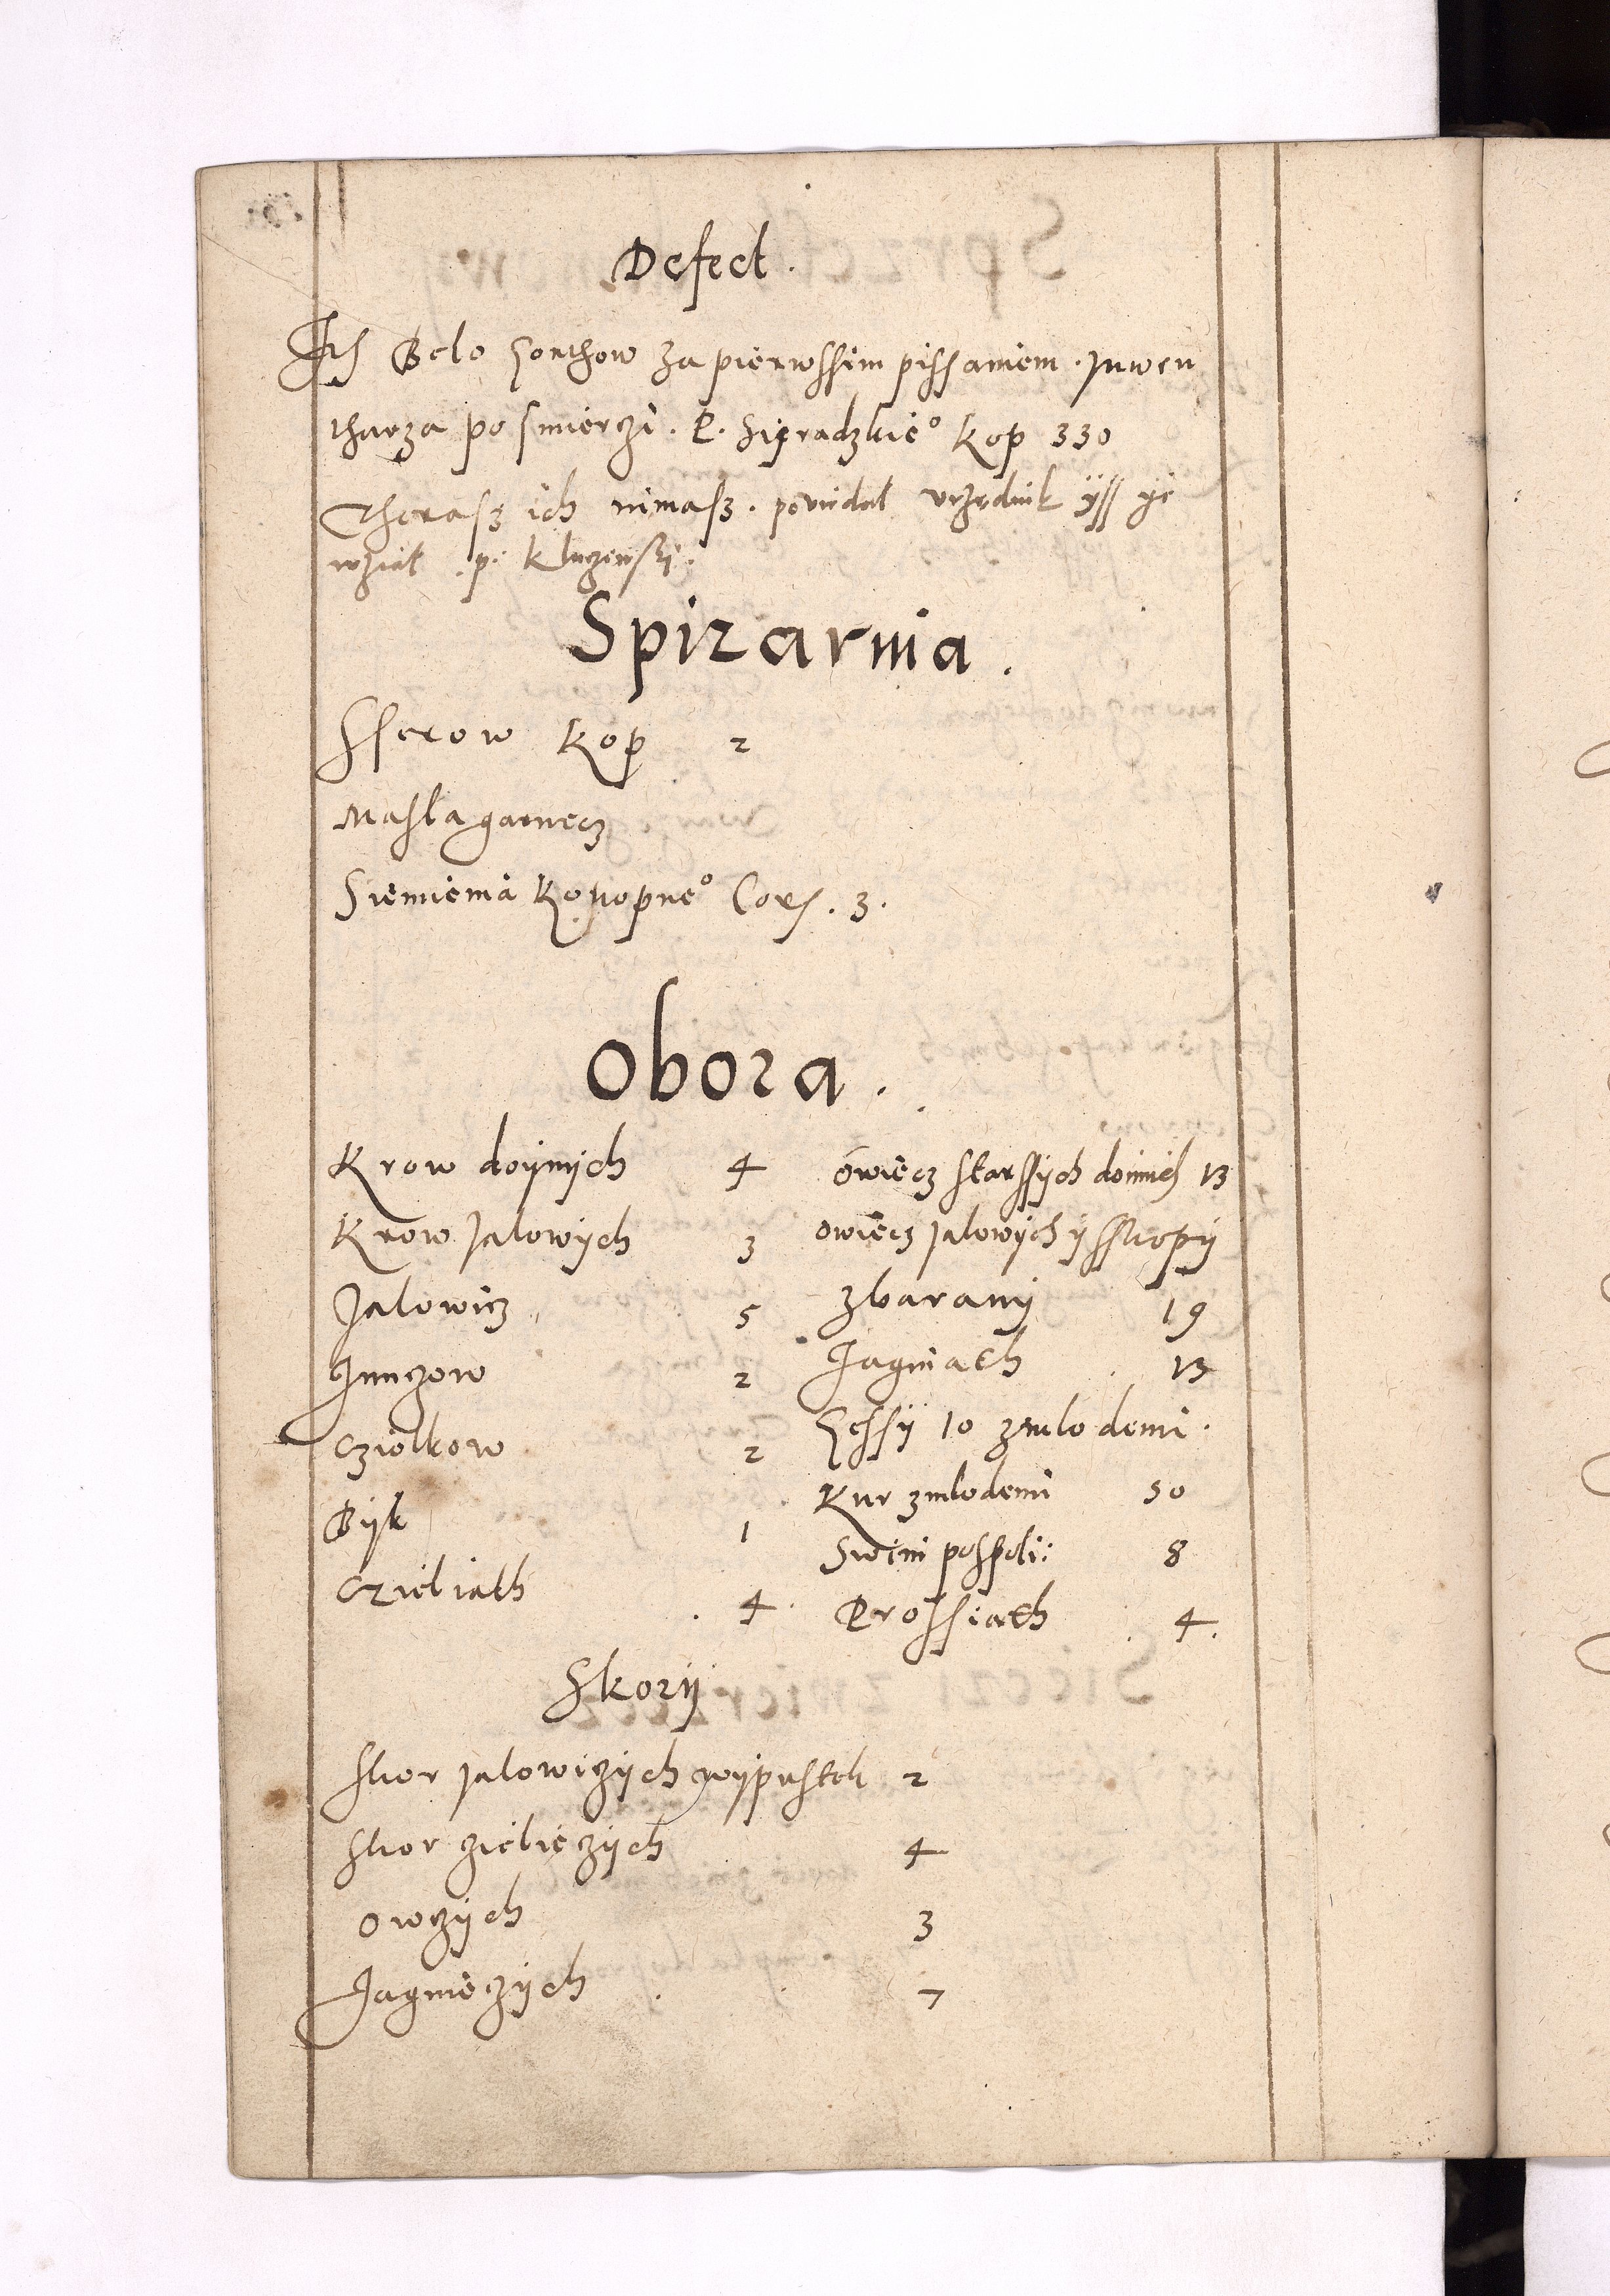 Defect.
Belo Gonthow za pierwssim pissaniem. Inwen
tharza po smierczi. P. Sieradzkie° kop 330
Therasz ich nimasz. poviedal vrzednik ÿss ge
wzial .p. Kluczewsky.
Spizarnia.
Sserow kop 2
Masla garnecz
Siemienia Konopne° Cor. 3.
Obora.
Krow doÿnÿch 4
Krow Jalowÿch 3
Jalowicz 5
Junczow 2
Cziolkow 2
Bÿk 1
Czieliath 4
owiecz starssÿch doinich 13
owiecz Jalowÿch ÿ sskopÿ
zbaranÿ 19
Jagniath 13
Gessÿ 10 zmlodemi.
Kur zmlodemi 50
Swini pospoli: 8
Prossiath 4.
Skorÿ
Skor Jalowiczÿch wÿpustek 2
Skor zieliczÿch 4
owczÿch 3
Jagnieczÿch 7